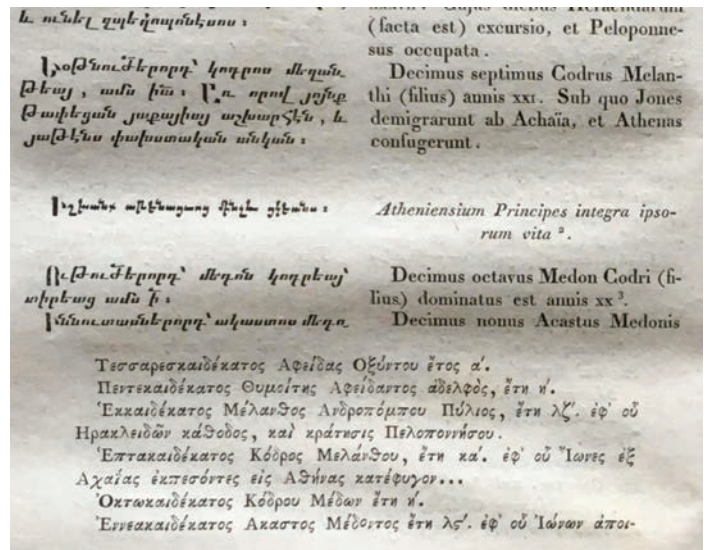 և ունել զպեղոպոնեսոս ։
Եօթնուժերորդ՝ կոդրոս մեղան֊
թեայ , ամս իա ։ Առ որով յոյնք
թափեցան յաքայիայ աշխարհէն , և
յաթէնս փախստական անկան ։
Իշխանք աթենացւոց մինչև ցկեանս ։
Ութուժերորդ՝ մեդոն կոդրեայ՝
տիրեաց ամս ի ։
Իննուտասներորդ՝ ակաստոս մեդո֊
(facta est) excursio, et Peloponne-
sus occupata .
Decimus septimus Codrus Melan-
thi (filius) annis XXI. Sub quo Jones
demigrarunt ab Achaïa, et Athenas
confugerunt .
Atheniensium Principes integra ipso-
rum vita ².
Decimus octavus Medon Codri (fi-
lius) dominatus est annis xx ³.
Decimus nonus Acastus Medonis
Τεσσαρεσκαιδέκατος Αφείδας Οξύντου ἔτος α´.
Πεντεκαιδέκατος Θυμοίτης Αφείδαντος ἀδελφὸς, ἔτη η´.
Ἑκκαιδέκατος Μέλανθος Ανδροπόμπου Πύλιος, ἔτη λζ´. ἐφ᾽ οὗ
Ηρακλειδῶν κάθοδος, καὶ κράτησις Πελοποννήσου.
Ἑπτακαιδέκατος Κόδρος Μελάνθου, ἔτη κα´. ἐφ᾽ οὗ Ἴωνες ἐξ
Αχαΐας ἐκπεσόντες εἰς Αθήνας κατέφυγον...
Ὀκτωκαιδέκατος Κόδρου Μέδων ἔτη η´.
Ἐννεακαιδέκατος Ακαστος Μέδοντος ἔτη λς´. ἐφ᾽ οὗ Ἰώνων ἀποι-